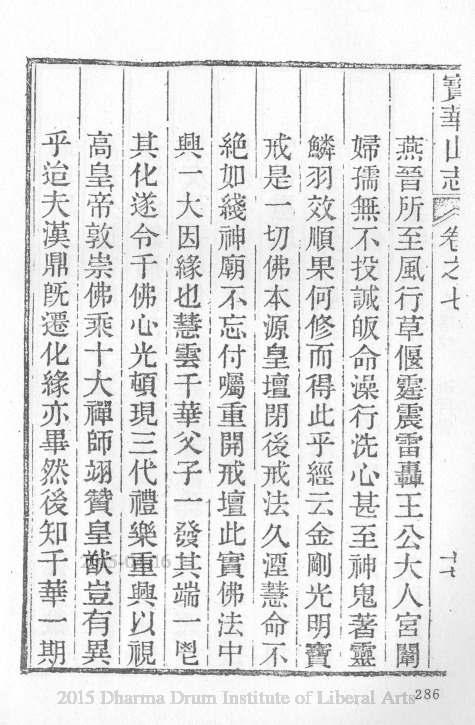 寶華山志 卷之七
十七
燕晉所至風行草偃霆震雷轟王公大人宮闈
婦孺無不投誠皈命澡行洗心甚至神鬼著靈
鱗羽效順果何修而得此乎經云金剛光明寶
戒是一切佛本源皇壇閉後戒法久湮慧命不
絶如綫神廟不忘付囑重開戒壇此實佛法中
興一大因緣也慧雲千華父子一發其端一鬯
其化遂令千佛心光頓現三代禮樂重興以視
高皇帝敦崇佛乘十大禪師翊贊皇猷豈有異
乎迨夫漢鼎旣遷化緣亦畢然後知千華一期
286
2015 Dharma Drum Institute of Liberal Arts